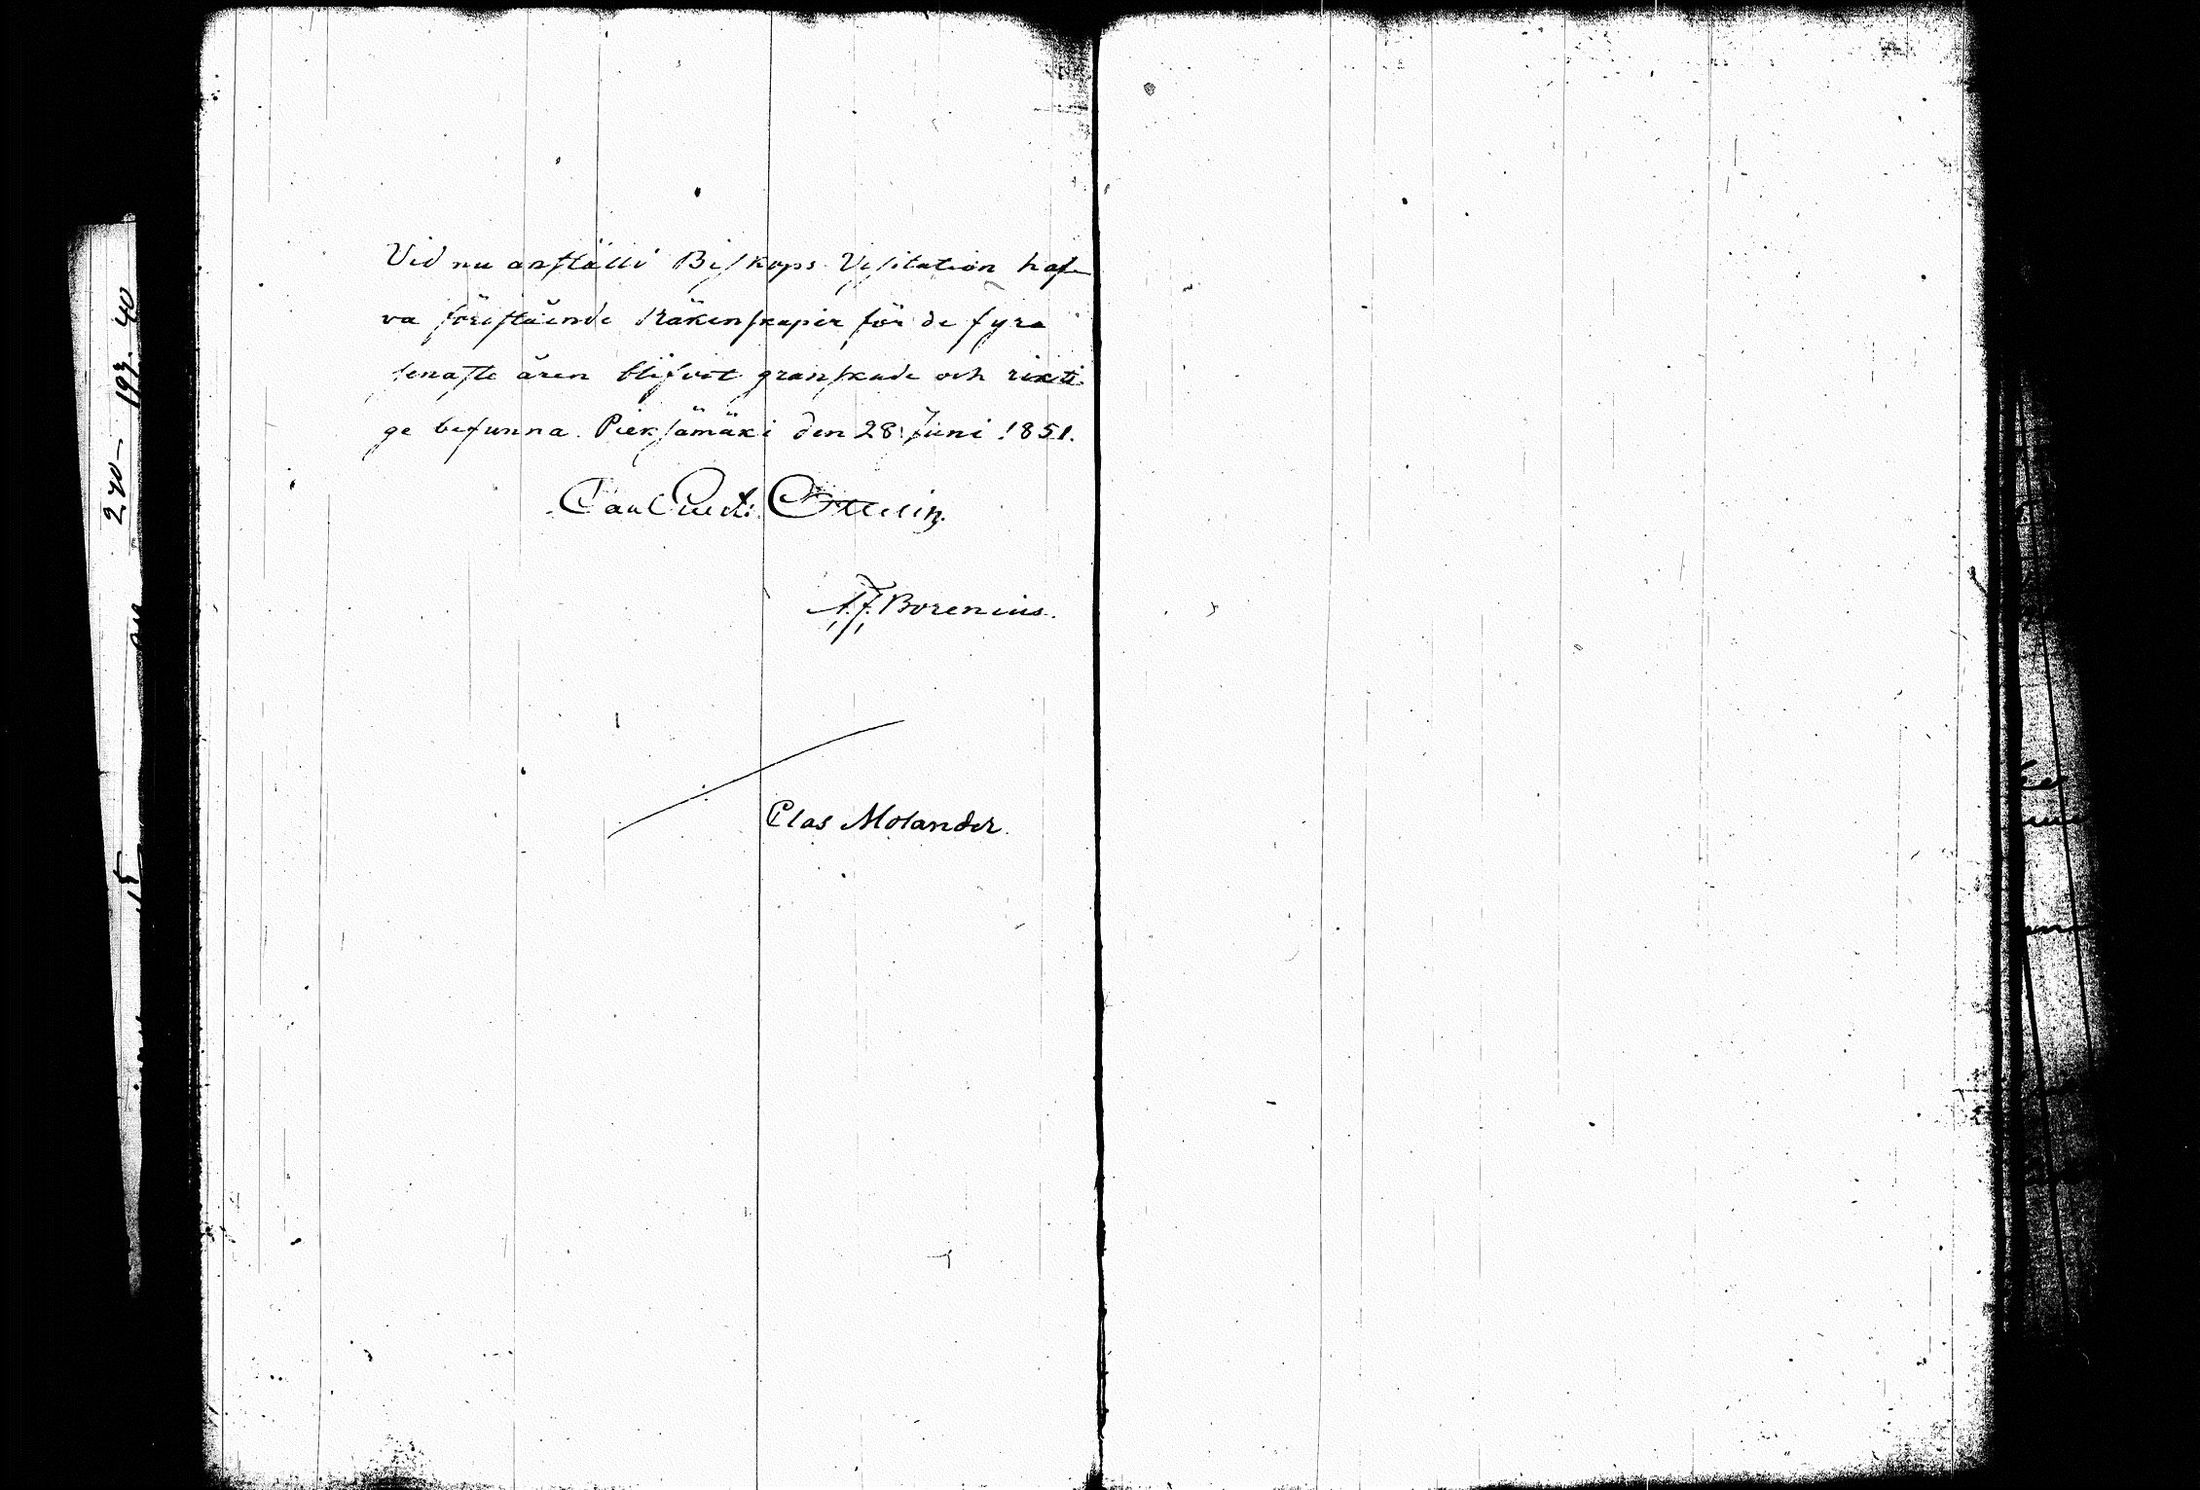 Vid nu anställd Biskops Visitation haf-
va förestående Räkenskaper för de fyra
senaste åren blifvit granskade och rikti-
ge befunna. Pieksämäki den 28 Juni 1851.
Carl Gust: Ottelin.
A. F. Borenius.
Clas Molander.
270 — 197. 40
15